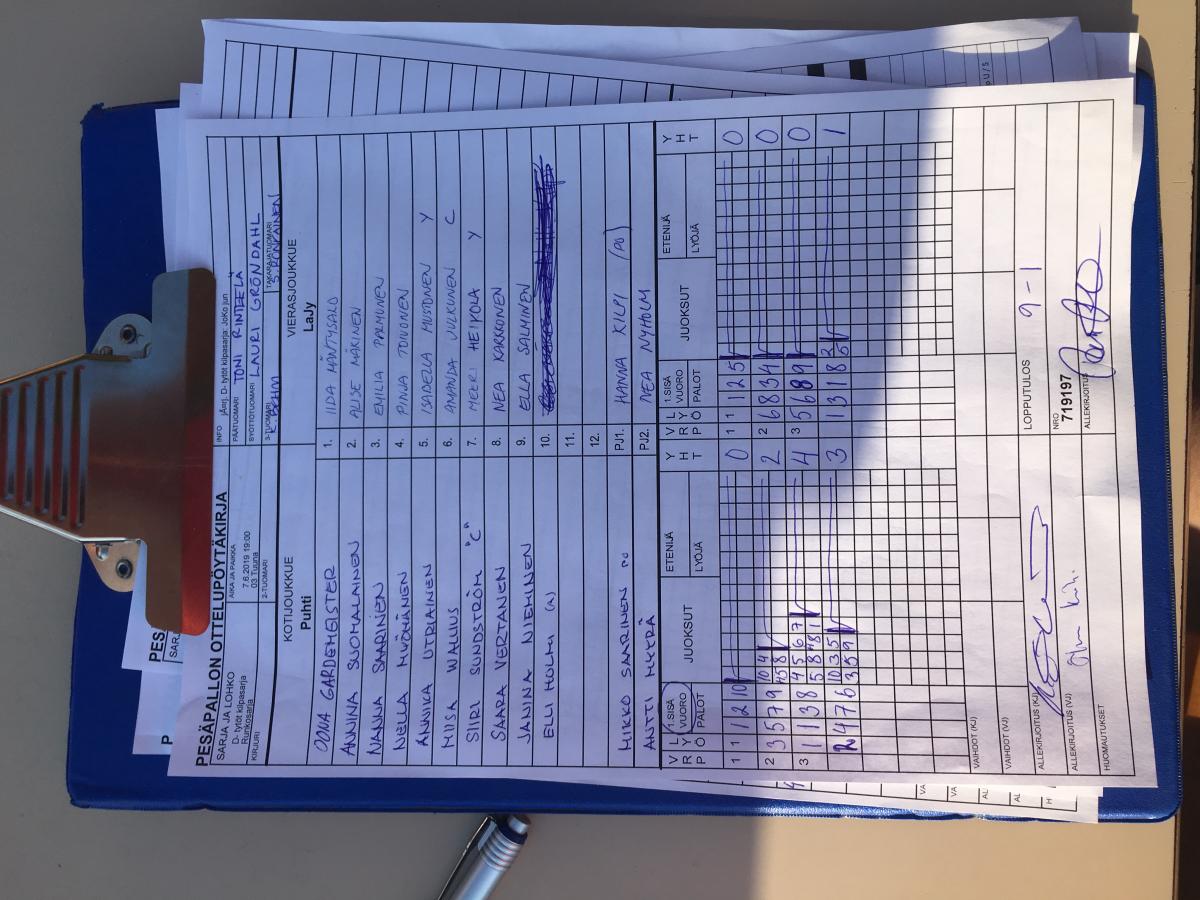 PESÄPALLON OTTELUPÖYTÄKIRJA
SARJA JA LOHKO
D- tytöt kilpasarja
Runkosarja
AIKA JA PAIKKA
7.6.2019 19:00
03 Tuuna
INFO jÄrrj. D- tytöt kilpasarja: JoKo jun
PÄÄTUOMARI TONI RINTEELÄ
SYÖTTÖTUOMARI LAURI GRÖNDAHL
KIRJURI
2-TUOMARI
3-TUOMARI
TAKARAJATUOMARI
KOTIJOUKKUE
Puhti
VIERASJOUKKUE
LaJy
ODDA GARDEMEISTER 1. IIDA MÄNTYSALO
ANNINA SUOMALAINEN 2. ALISE MÄKINEN
NANNA SAARINEN 3. EMILIA PARMUNEN
NELLA MYÖHÄNEN 4. PINJA TOIVONEN
ANNIKA UTRIAINEN 5. ISABELLA MUSTONEN Y
MIISA WALIUS 6. AMANDA JULKUNEN C
SIIRI SUNDSTRÖM "C" 7. MERI HEIKOLA Y
SAARA VERTANEN 8. NEA KARKKONEN
JANINA NIEMINEN 9. ELLA SALMINEN
ELLI HOLMI (A) 10.
11.
12.
MIKKO SAARINEN PJ1. HANNA KILPI (PJ)
ANTTI PJ2. NEA NYHOLM
V R P L Y Ö 1.SISÄ VUORO PALOT JUOKSUT ETENIJÄ LYÖJÄ Y H T V R P L Y Ö 1.SISÄ VUORO PALOT JUOKSUT ETENIJÄ LYÖJÄ Y H T
1 1 1 2 10 0 1 1 1 2 5 0
2 3 5 7 9 10 4 5 8 2 2 6 8 3 4 0
3 1 1 3 8 4 5 6 7 5 8 4 3 5 6 8 9 0
2 4 7 6 10 3 5 3 5 9 3 3 1 3 1 8 1
VAIHDOT (KJ)
VAIHDOT (VJ)
LOPPUTULOS 9 - 1
ALLEKIRJOITUS (KJ)
NRO
7191197
ALLEKIRJOITUS (VJ)
ALLEKIRJOITUS
HUOMAUTUKSET